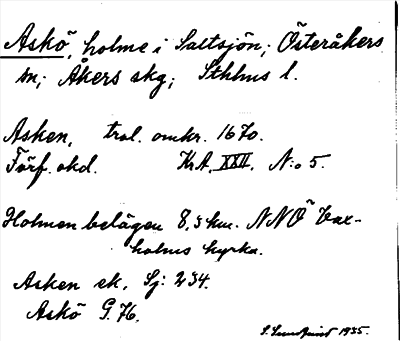 Askö, holme i Saltsjön; Österåkers
sn; Åkers skg; Sthlms l.
Asken, trol. omkr. 1670.
Förf. okd. KrA, XXII, N:o 5.
Holmen belägen 8,5 km. NNÖ Vax-
holms kyrka.
Asken ek. Sj: 234.
Askö G. 76.
S. Lundquist 1935.